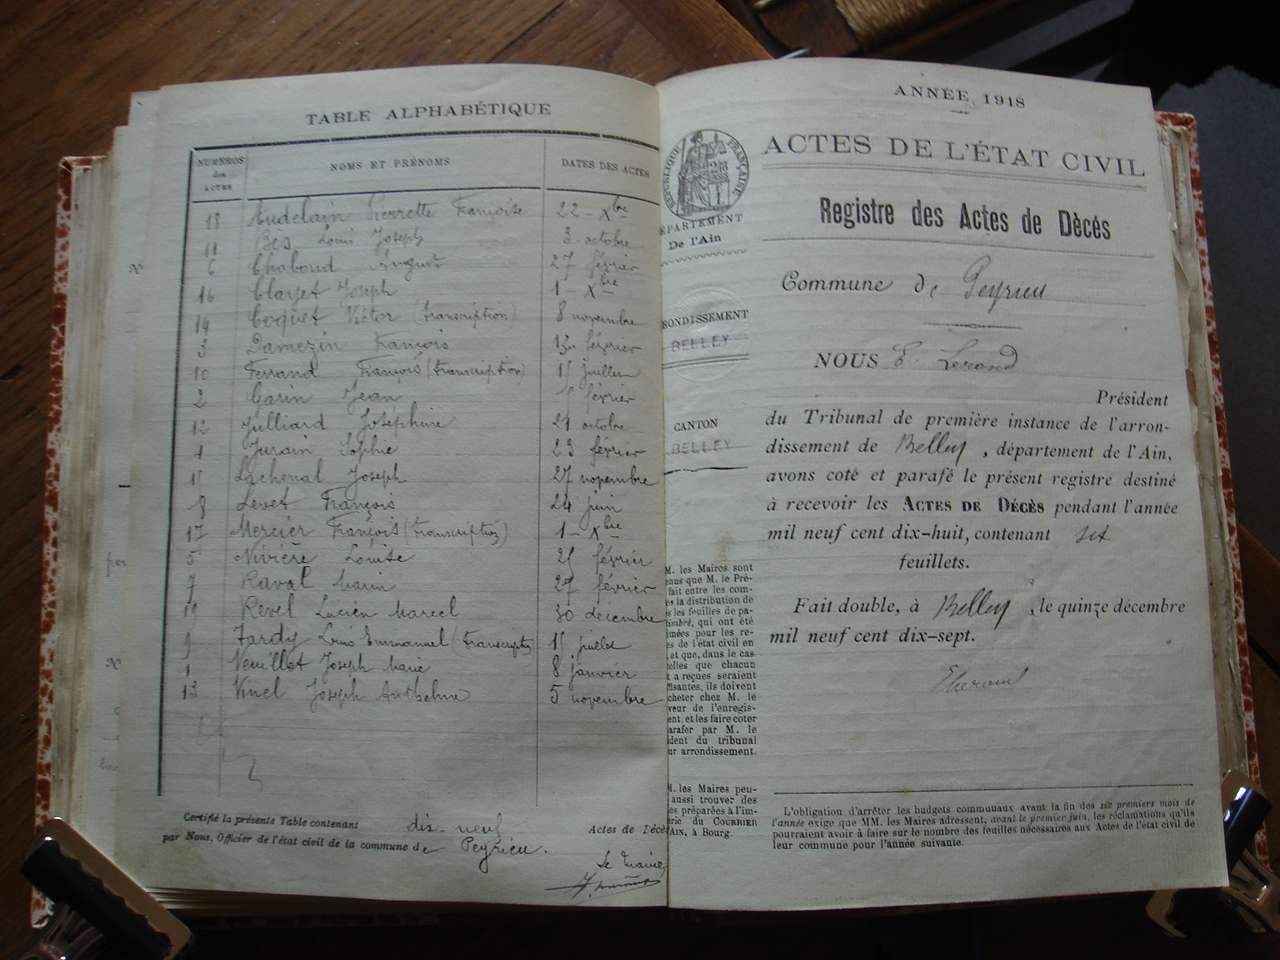 TABLE ALPHABÉTIQUE
NUMÉROS des ACTES NOMS ET PRÉNOMS DATES DES ACTES
18 Audelain Pierrette Françoise 22 - Xbre
11 Bès Louis Joseph 3 octobre
6 Chaboud August 27 février
16 Clayet Joseph 1 - Xbre
14 Coquet Victor (transcription) 8 novembre
3 Damezin François 13 février
10 Ferrand François (transcription) 15 juillet
2 Garin Jean février
12 Julliard Joséphine 21 octobre
4 Jurain Sophie 23 février
15 Lachenal Joseph 27 novembre
8 Levet François 24 juin
17 Mercier François (transcription) 1 - Xbre
5 Nivière Louise 25 février
7 Raval Marin 27 février
19 Revel Lucien Marcel 30 décembre
9 Tardy Louis Emmanuel (transcription) 15 juillet
1 Veuillet Joseph Marie 8 janvier
13 Vinel Joseph Anthelme 5 novembre
Certifié la présente Table contenant dix-neuf Actes de Décès
par Nous, Officier de l'état civil de la commune de Peyrieu.
Le Maire,
ANNÉE 1918
ACTES DE L'ÉTAT CIVIL
Registre des Actes de Décès
RÉPUBLIQUE FRANÇAISE
DÉPARTEMENT
De l'Ain
Commune de Peyrieu
RONDISSEMENT
BELLEY
NOUS
Président
du Tribunal de première instance de l'arron-
CANTON
BELLEY
dissement de Belley, département de l'Ain,
avons coté et parafé le présent registre destiné
à recevoir les ACTES DE DÉCÈS pendant l'année
mil neuf cent dix-huit, contenant six
feuillets.
Fait double, à Belley, le quinze décembre
mil neuf cent dix-sept.
M. les Maires sont
nus que M. le Pré-
fait entre les com-
s la distribution de
s les feuilles de pa-
imbré, qui ont été
mées pour les re-
s de l'état civil en
et que, dans le cas
elles que chacun
a reçues seraient
fisantes, ils doivent
cheter chez M. le
veur de l'enregis-
ent, et les faire coter
arafer par M. le
dent du tribunal
ur arrondissement.
M. les Maires peu-
aussi trouver des
es préparées à l'im-
rie du COURRIER
AIN, à Bourg.
L'obligation d'arrêter les budgets communaux avant la fin des six premiers mois de
l'année exige que MM. les Maires adressent, avant le premier juin, les réclamations qu'ils
pourraient avoir à faire sur le nombre des feuilles nécessaires aux Actes de l'état civil de
leur commune pour l'année suivante.